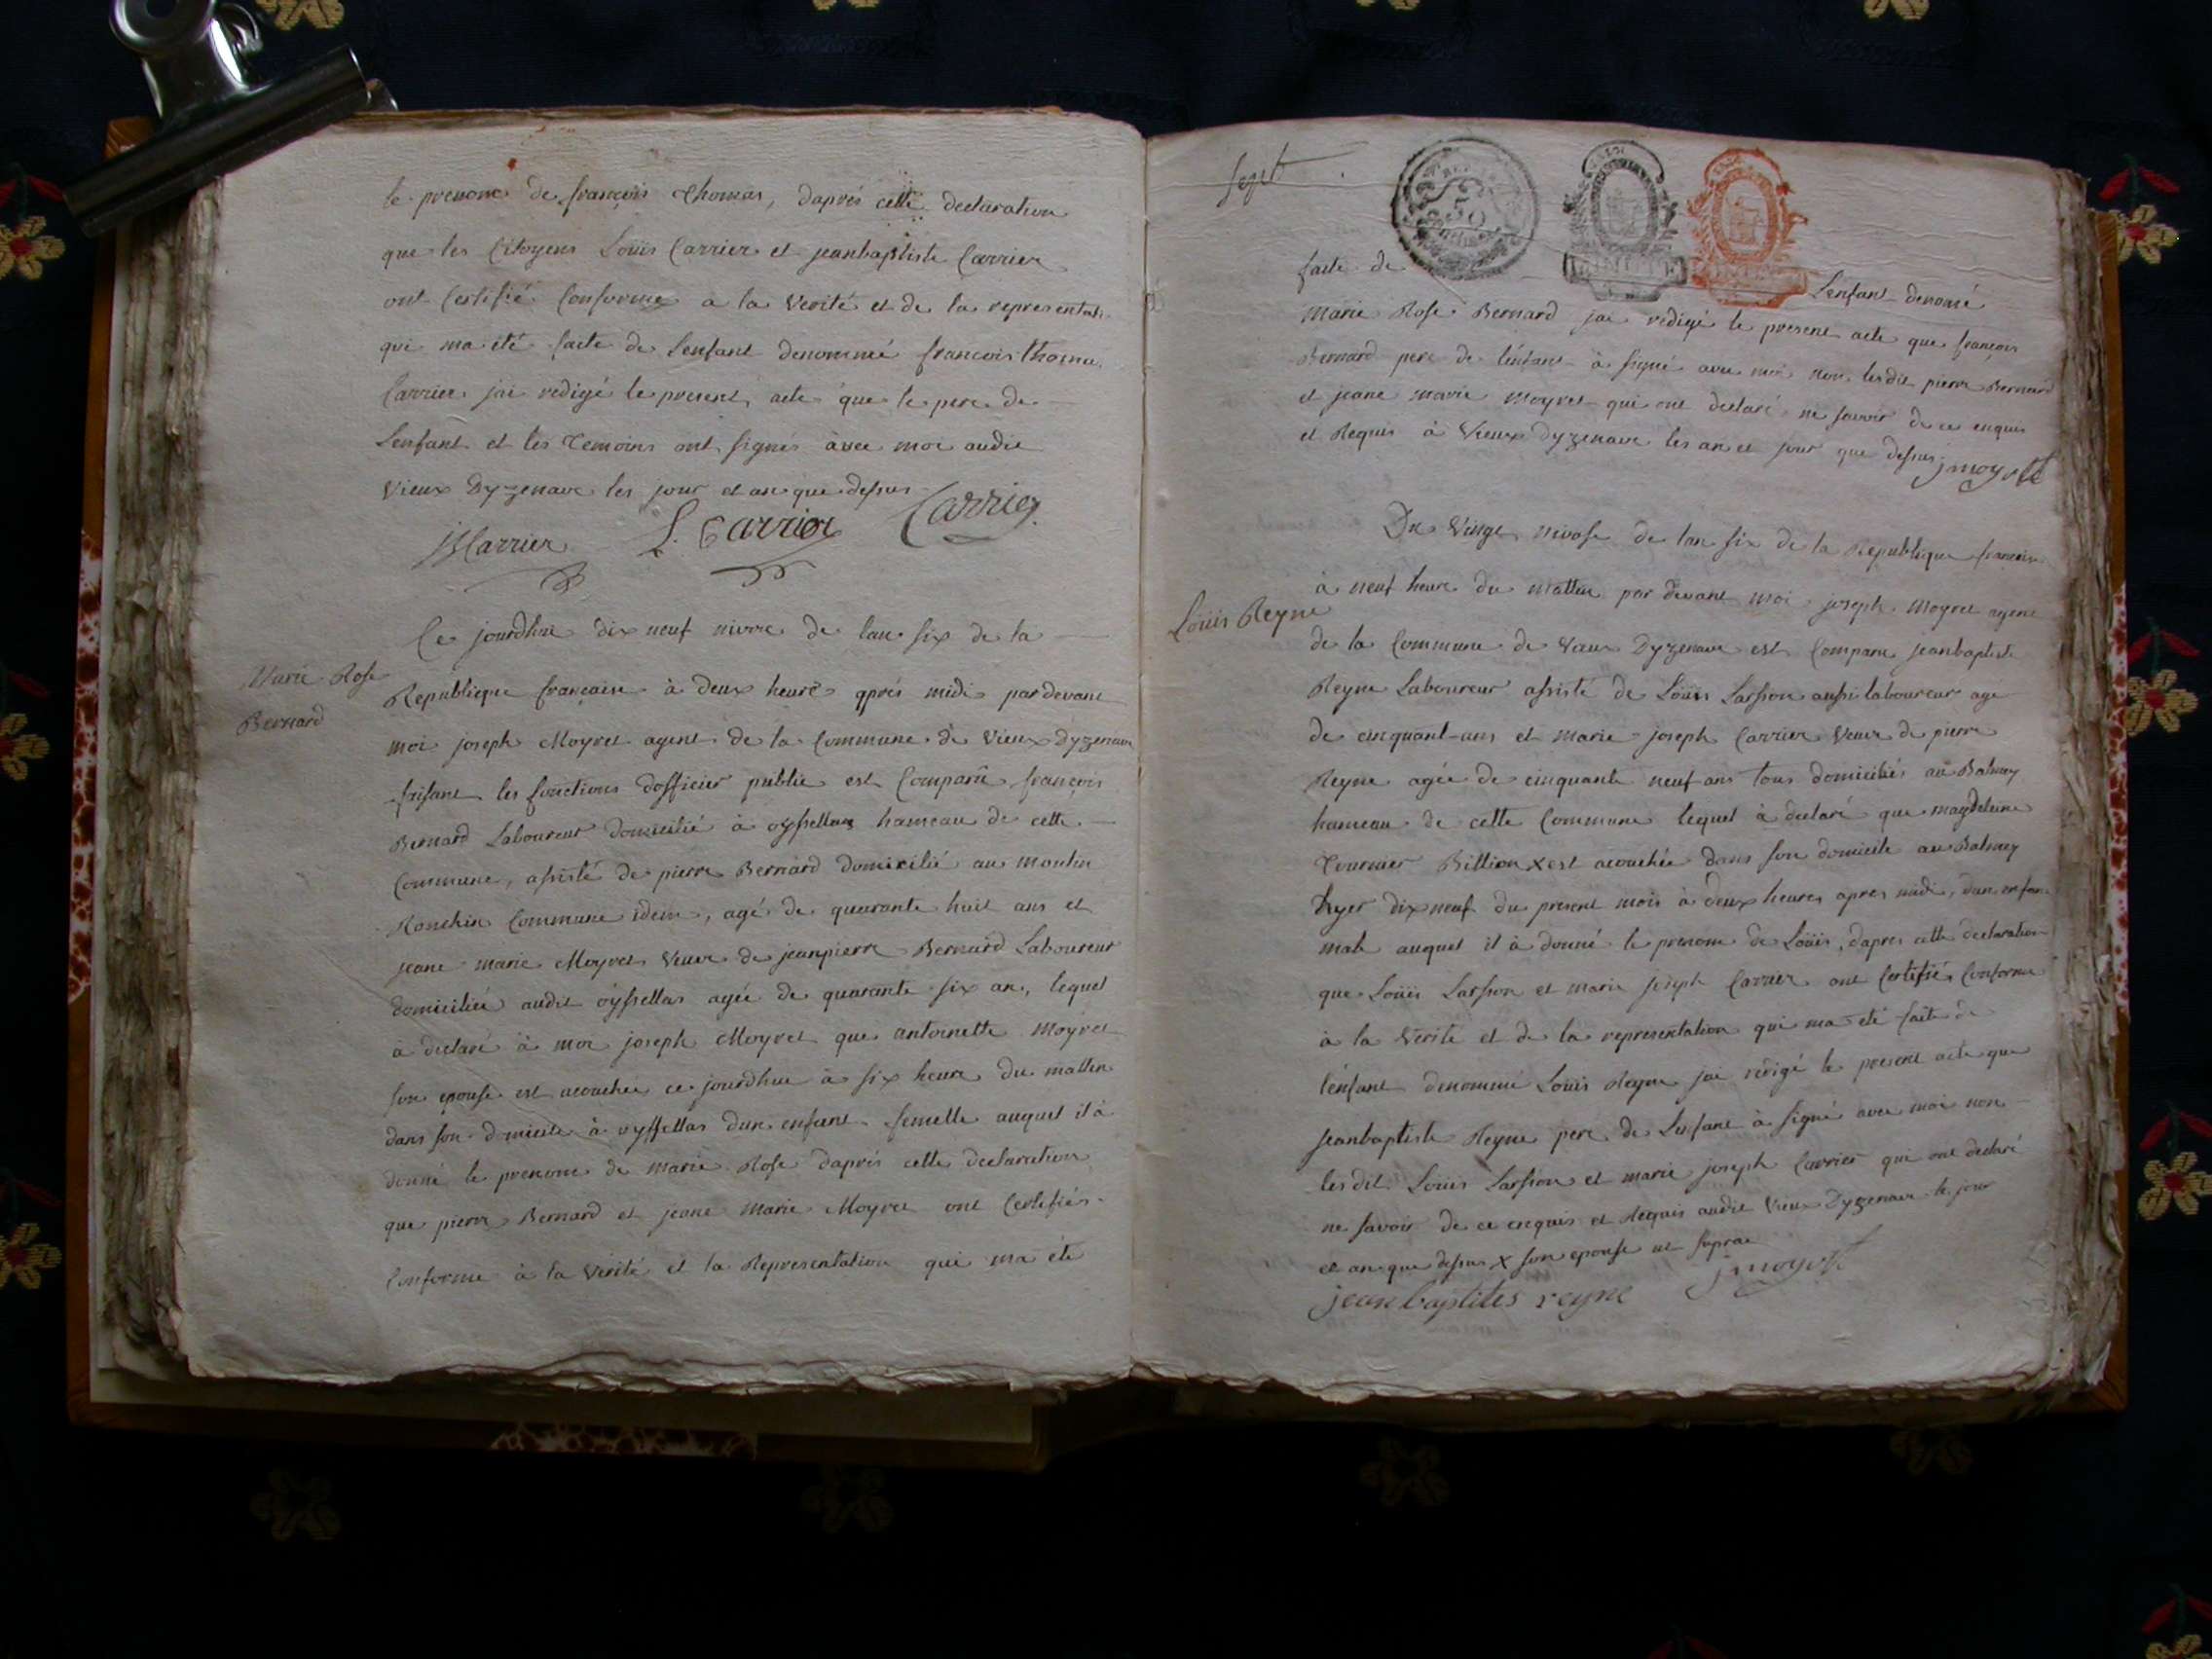 le prenom de françois Thomas, daprés cette declaration
que les Citoyens Loüis Carrier et jeanbaptiste Carrier
ont Certifié Conforme a la Verité et de la representati
qui ma été faite de lenfant denommé francois thoma
Carrier jai redigé le present acte que le pere de
Lenfant et les Temoins ont signes avec moi audit
Vieux Dyzenave les jour et an que dessus
JBCarrier L. Carrier Carrier
Ce jourdhui dix neuf nivose de lan six de la
Marie Rose
Bernard
Republique francaise à deux heure après midi pardevant
moi joseph Moyret agent de la Commune de Vieux Dyzenave
faisant les fonctions dofficier public est Comparû françois
Bernard Laboureur domicilié à oyssellas hameau de cette
Commune, assisté de pierre Bernard domicilié au moulin
Ronchin Commune idem, agé de quarante huit ans et
jeane marie Moyret Veuve de jeanpierre Bernard Laboureur
domiciliée audit öyssellas agée de quarante six an, lequel
à declaré à moi joseph Moyret que antoinette Moyret
son epouse est acouchée ce jourdhui à six heure du mattin
dans son domicile à oyssellas dun enfant femelle auquel il à
donné le prenom de marie Rose daprés cette declaration
que pierre Bernard et jeane Marie Moyret ont Certifiés
Conforme à la Vérité et la Representation qui ma été
sept
50
faite de Lenfant denomé
Marie Rose Bernard jai redigé le present acte que françois
Bernard pere de lénfant à signé avec moi non lesdit pierre Bernard
et jeane marie moyret qui ont declaré ne savoir de ce enquis
et Requis à Vieux Dyzenave les an et jour que dessus jmoyret
Du Vingt nivose de lan six de la Republique francaise
à neuf heure du mattin par devant moi joseph Moyret agent
Loüis Reyne
de la Commune de Vieux Dyzenave est Comparu jeanbaptiste
Reyne Laboureur assisté de Loüis Lassion aussi laboureur age
de cinquant-ans et marie joseph Carrier Veuve de pierre
Reyne agée de cinquante neuf ans tous domiciliés au Balmey
hameau de cette Commune lequel à declaré que magdeleine
Tournier Billion x est acouchée dans son domicile au Balmey
hyer dix neuf du present mois à deux heures apres midi, dun enfan
male auquel il à donné le prenom de Loüis, dapres cette declaration
que Loüis Lassion et marie joseph Carrier ont Certifiés Conforme
à la Verité et de la representation qui ma été faite de
lénfant denommé Loüis Reyne jai redigé le present acte que
jeanbaptiste Reyne pere de Lenfant à signé avec moi non
lesdit Loüis Lassion et marie joseph Carrier qui ont declaré
ne savoir de ce enquis et Requis audit Vieux Dyzenave le jour
et an que dessus x son epouse ut supra
jean baptites reyne jmoyret